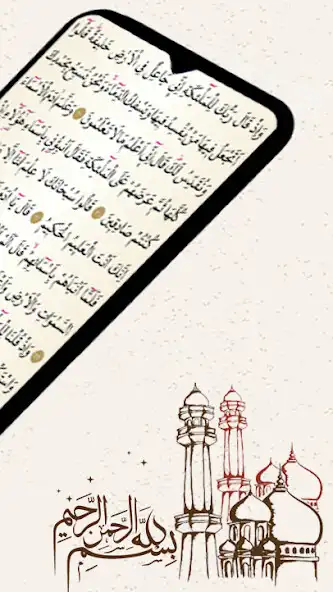 وَإِذْ قَالَ رَبُّكَ لِلْمَلَٰٓئِكَةِ إِنِّي جَاعِلٌ فِي الْأَرْضِ خَلِيفَةً قَالُوٓا۟
أَتَجْعَلُ فِيهَا مَن يُفْسِدُ فِيهَا وَيَسْفِكُ الدِّمَآءَ وَنَحْنُ نُسَبِّحُ بِحَمْدِكَ
وَنُقَدِّسُ لَكَ قَالَ إِنِّيٓ أَعْلَمُ مَا لَا تَعْلَمُونَ وَعَلَّمَ ءَادَمَ الْأَسْمَآءَ
كُلَّهَا ثُمَّ عَرَضَهُمْ عَلَى الْمَلَٰٓئِكَةِ فَقَالَ أَنۢبِـُٔونِي بِأَسْمَآءِ هَٰٓؤُلَآءِ إِن
كُنتُمْ صَادِقِينَ قَالُوا۟ سُبْحَانَكَ لَا عِلْمَ لَنَآ إِلَّا
إِنَّكَ أَنتَ الْعَلِيمُ الْحَكِيمُ قَالَ يَا
فَلَمَّآ أَنۢبَأَهُم بِأَسْمَآئِهِمْ قَالَ
السَّمَٰوَاتِ وَالْأَرْضِ
وَإِذْ قُلْنَا
بِسْمِ اللهِ الرَّحْمٰنِ الرَّحِيْمِ